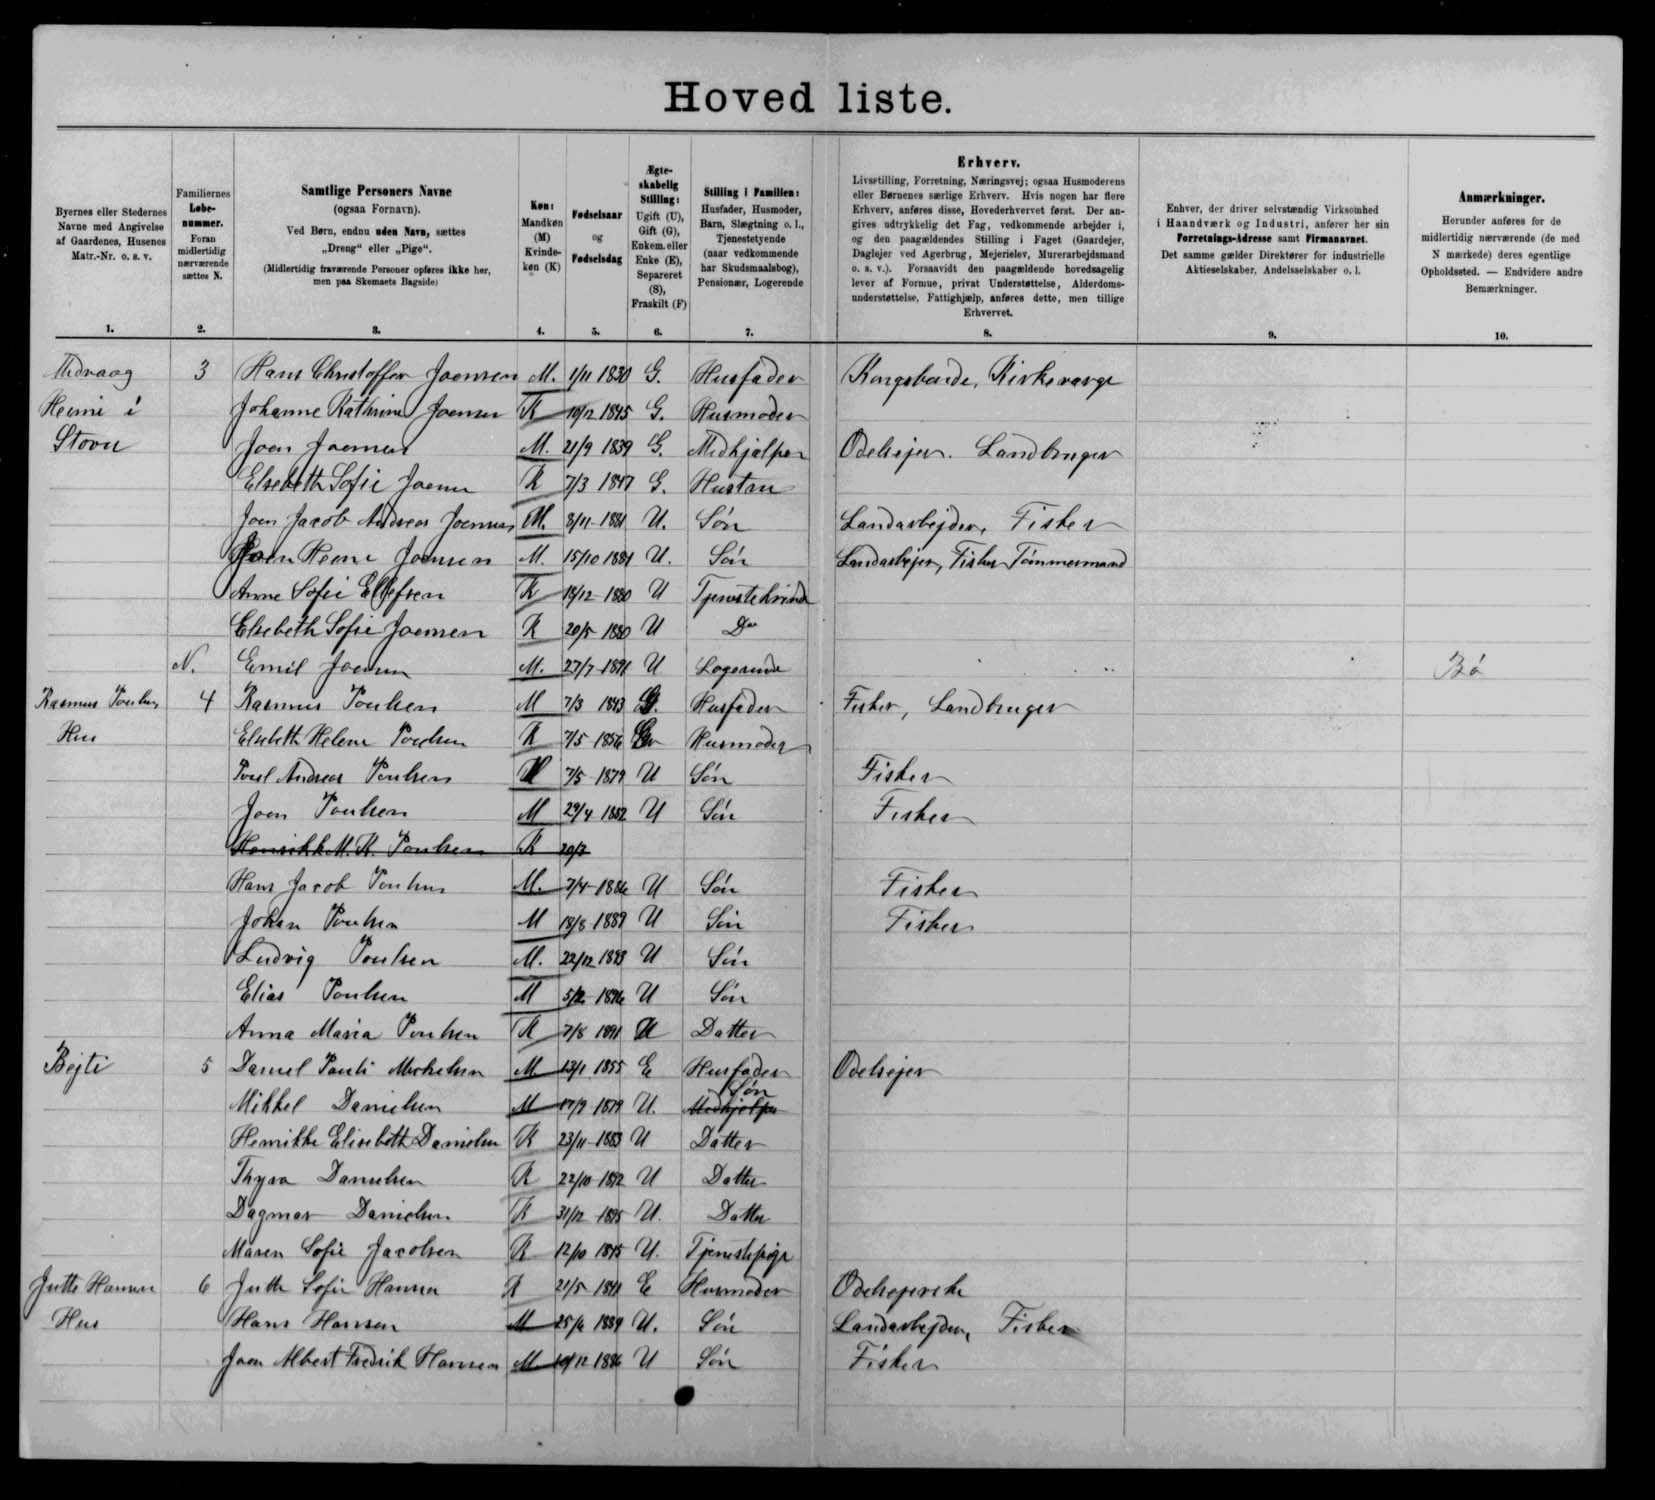 Hoved liste.
Byernes eller Stedernes Navne med Angivelse af Gaardenes, Husenes Matr.-Nr. o. s. v.
Familiernes Løbenummer. Foran midlertidig nærværende sættes N.
Samtlige Personers Navne
(ogsaa Fornavn).
Ved Børn, endnu uden Navn, sættes „Dreng“ eller „Pige“.
(Midlertidig fraværende Personer opføres ikke her, men paa Skemaets Bagside)
Køn: Mandkøn (M) Kvindekøn (K)
Fødselsaar og Fødselsdag
Ægteskabelig Stilling: Ugift (U), Gift (G), Enkem. eller Enke (E), Separeret (S), Fraskilt (F)
Stilling i Familien: Husfader, Husmoder, Barn, Slægtning o. l., Tjenestetyende (naar vedkommende har Skudsmaalsbog), Pensionær, Logerende
Erhverv.
Livsstilling, Forretning, Næringsvej; ogsaa Husmoderens eller Børnenes særlige Erhverv. Hvis nogen har flere Erhverv, anføres disse, Hovederhvervet først. Der angives udtrykkelig det Fag, vedkommende arbejder i, og den paagældendes Stilling i Faget (Gaardejer, Daglejer ved Agerbrug, Mejerielev, Murerarbejdsmand o. s. v.). Forsaavidt den paagældende hovedsagelig lever af Formue, privat Understøttelse, Alderdomsunderstøttelse, Fattighjælp, anføres dette, men tillige Erhvervet.
Enhver, der driver selvstændig Virksomhed i Haandværk og Industri, anfører her sin Forretnings-Adresse samt Firmanavnet. Det samme gælder Direktører for industrielle Aktieselskaber, Andelsselskaber o. l.
Anmærkninger.
Herunder anføres for de midlertidig nærværende (de med N mærkede) deres egentlige Opholdssted. — Endvidere andre Bemærkninger.
1. 2. 3. 4. 5. 6. 7. 8. 9. 10.
3 Hans Christoffer Joensen M. 1/11 1830 G. Husfader Kongsbonde, Kirkeværge
Heimi i Johanne Kathrine Joensen K 10/12 1845 G. Husmoder
Stovu Joen Joensen M. 21/9 1839 G. Medhjælper Odelsejer. Landbruger
Elsebeth Sofie Joensen K 7/3 1847 G. Hustru
Joen Jacob Andreas Joensen M. 8/11 1881 U. Søn Landarbejder, Fisker
Heine Joensen M. 15/10 1884 U. Søn Landarbejder, Fisker Tømmermand
Anne Sofie Ellefsen K 18/12 1880 U Tjenestekvinde
Elsebeth Sofie Joensen K 20/5 1880 U Do
N. Emil Joensen M. 27/7 1891 U Logerende Bø
Rasmus Poulsens 4 Rasmus Poulsen M 7/3 1843 G. Husfader Fisker, Landbruger
Hus Elsebeth Helene Poulsen K 7/5 1856 G Husmoder
Poul Andreas Poulsen M 7/5 1879 U Søn Fisker
Joen Poulsen M 29/4 1882 U Søn Fisker
M. K. Poulsen K 20/7
Hans Jacob Poulsen M. 7/4 1886 U Søn Fisker
Johan Poulsen M 18/8 1889 U Søn Fisker
Ludvig Poulsen M. 22/12 1893 U Søn
Elias Poulsen M 5/2 1896 U Søn
Anna Maria Poulsen K 7/8 1891 U Datter
Bejti 5 Daniel Pauli Michelsen M 13/1 1855 E Husfader Odelsejer
Mikkel Danielsen M 17/9 1879 U. Medhjælper Søn
Henrikke Elisebeth Danielsen K 23/11 1883 U Datter
Thyra Danielsen K 22/10 1892 U Datter
Dagmar Danielsen K 31/12 1895 U. Datter
Maren Sofie Jacobsen K 12/10 1845 U. Tjenestepige
Jutte Hansens 6 Jutte Sofie Hansen K 21/5 1841 E Husmoder Odelsejerske
Hus Hans Hansen M 1889 U. Søn Landarbejder, Fisker
Joen Albert Fredrik Hansen M 1886 U Søn Fisker